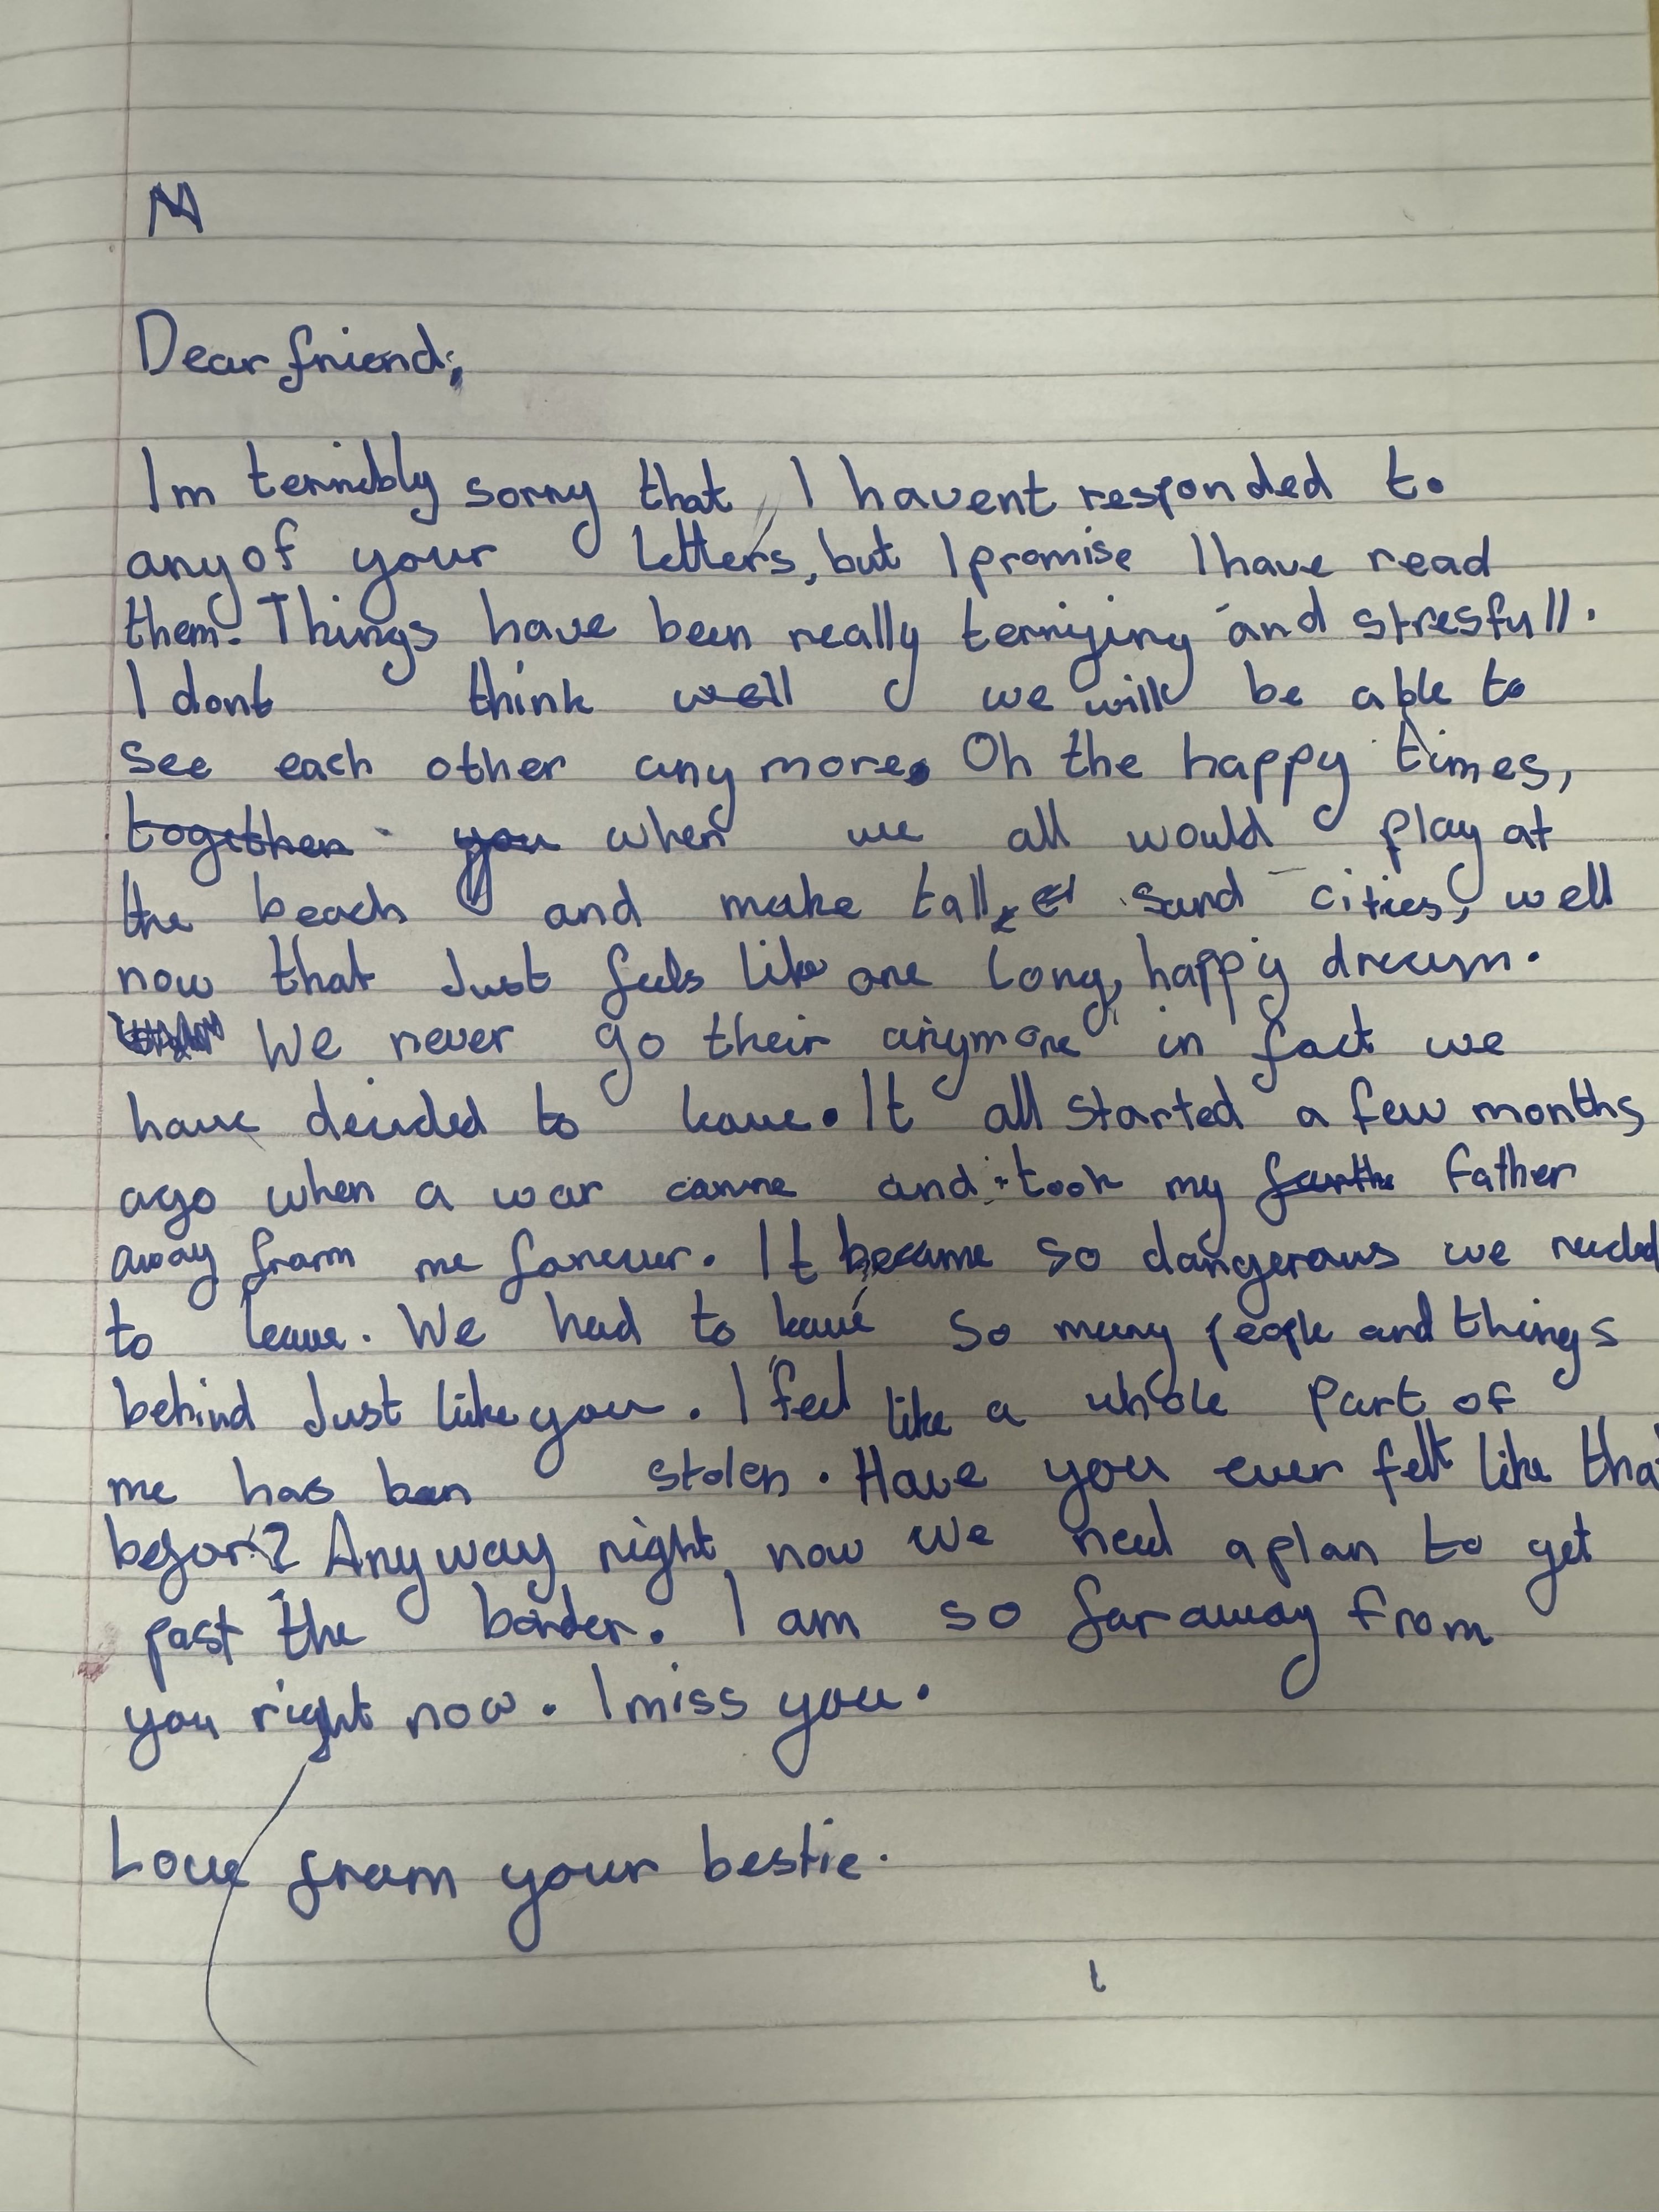 M
Dear friend,
Im terribly sorry that I havent responded to
any of your letters, but I promise I have read
them. Things have been really terriying and stresfull.
I dont think well we will be able to
see each other any more. Oh the happy times,
together you when we all would play at
the beach and make tall sand cities, well
now that Just feels like one long, happy dream.
We never go their anymore in fact we
have decided to leave. It all started a few months
ago when a war came and took my father
away from me forever. It became so dangerous we needed
to leave. We had to leave so many people and things
behind Just like you. I feel like a whole part of
me has ben stolen. Have you ever felt like that
befor? Anyway right now we need a plan to get
past the border. I am so far away from
you right now. I miss you.
Love from your bestie.